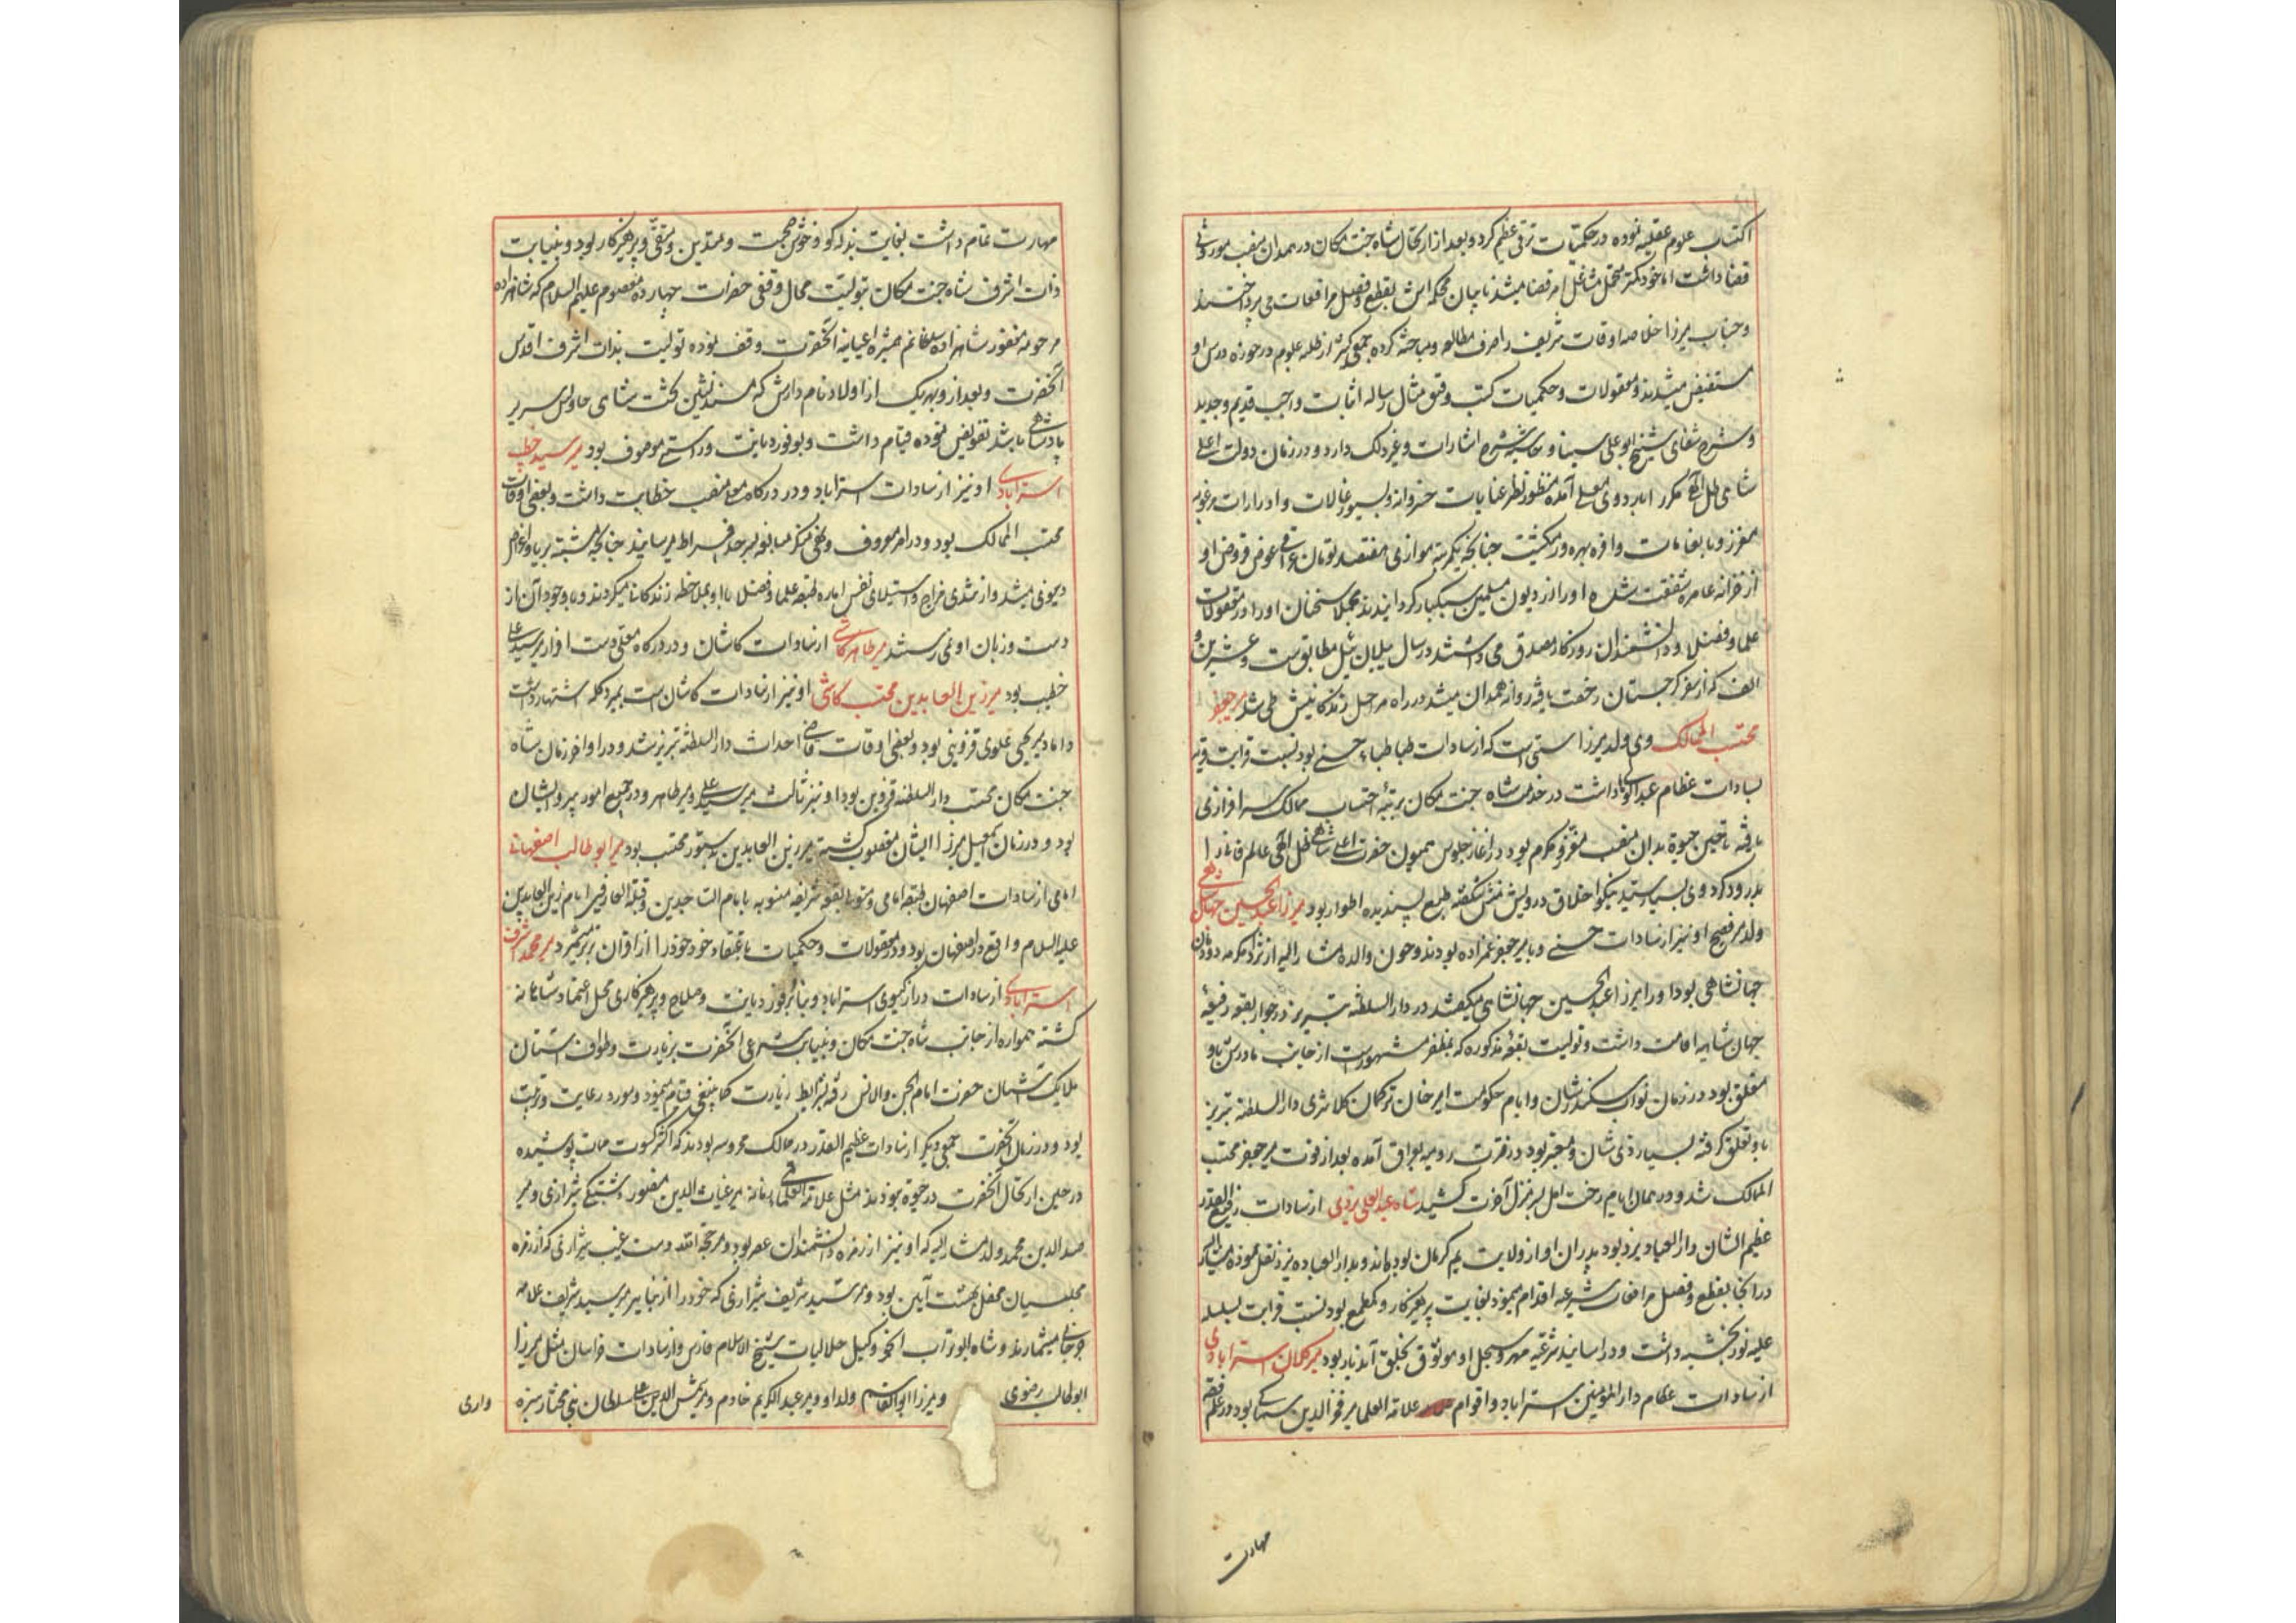 اکتساب علوم عقلیه نموده در حکمیات ترقی عظیم کرد و بعد از ارتحال شاه جنت مکان در همدان منصب موروثی
قضا داشت اما خود کمتر متحمل مشاغل امر قضا میشد نایبان محکمه اش بقطع و فصل مرافعات می پرداختند
و جناب میرزا خلاصه اوقات شریف را صرف مطالعه و مباحثه کرده جمعی کثیر از طلبه علوم در حوزه درس او
مستفیض میشدند و معقولات و حکمیات کتب دقیق مثال رساله اثبات واجب قدیم و جدید
و شرح شفای شیخ ابو علی سینا و حاشیه شرح اشارات و غیر ذلک دارد و در زمان دولت اعلی
شاهی ظل اللهی مکرر باردوی معلی آمده منظور نظر عنایات خسروانه و بسیورغالات و ادرارات مرغوب
معزز و بانعامات وافره بهره ور میگشت چنانچه یکمرتبه موازی هفتصد تومان عراقی عوض قروض او
از خزانه عامره شفقت شده او را از دیون مسلمین سبکبار گردانیدند مجملا سخنان او را در معقولات
علما و فضلا و دانشمندان روزگار مصدق می داشتند در سال ییلان ئیل مطابق ست و عشرین و
الف که از سفر گرجستان رخصت یافته روانه همدان میشد در راه مراحل زندگانیش طی شد میر جعفر
محتسب الممالک وی ولد میرزا ستی است که از سادات طباطبا حسنی بود نسبت قرابت قریبه
بسادات عظام عبد الوهابیه داشت در خدمت شاه جنت مکان برتبه احتساب ممالک سرافرازی
یافته تا حین حیوة بدان منصب معزز و مکرم بود در آغاز جلوس همیون حضرت اعلی شاهی ظل اللهی عالم فانی را
بدرود کرد وی بسیار سید نیکو اخلاق درویش منش شکفته طبع پسندیده اطوار بود میرزا عبد الحسین جهانشاهی
ولد میر فصیح او نیز از سادات حسنی و با میر جعفر عمزاده بودند و چون والده مشار الیه از نژاد مکرمه دودمان
جهانشاهی بود او را میرزا عبد الحسین جهانشاهی میگفتند در دار السلطنه تبریز در جوار بقعه رفیعه
جهان شاهیه اقامت داشت و تولیت بقعه مذکوره که بمظفریه مشهور است از جانب مادرش باو
متعلق بود در زمان نواب سکندر شان و ایام حکومت امیر خان ترکمان کلانتری دار السلطنه تبریز
باو تعلق گرفته بسیار ذی شان و معتبر بود در فترت رومیه بعراق آمده بعد از فوت میر جعفر محتسب
الممالک شد و در همان ایام رخت امل بسر منزل آخرت کشید شاه عبد العلی یزدی از سادات رفیع القدر
عظیم الشان دار العباد یزد بود پدران او از ولایت بم کرمان بوده اند و بدار العباده یزد نقل نموده مشار الیه
در آنجا بقطع و فصل مرافعات شرعیه اقدام مینمود بغایت پرهیزکار و کم طمع بود نسبت قرابت بسلسله
علیه نوربخشیه داشت و در اسانید شرعیه مهر و سجل او موثوق به خلق آن دیار بود میر کلان استرابادی
از سادات عظام دار المؤمنین استراباد و اقوام علامة العلما میر فخر الدین سماکی بود در علم فقه
مهارت
مهارت تمام داشت بغایت بذله گو و خوش صحبت و متدین و متقی و پرهیزکار بود و بنیابت
ذات اشرف شاه جنت مکان تبولیت محال وقفی حضرات چهارده معصوم علیهم السلام که شاهزاده
مرحومه مغفوره شاهزاده سلطانم همشیره اعیانیه آنحضرت وقف نموده تولیت بذات اشرف اقدس
آنحضرت و بعد از و بهر یک از اولاد نامدارش که مسند نشین تخت شاهی و حاوی سریر
پادشاهی باشد تفویض نموده قیام داشت و بوفور دیانت و راستی موصوف بود میر سید علی خطیب
استرابادی او نیز از سادات استراباد و در درگاه معلی منصب خطابت داشت و بعضی اوقات
محتسب الممالک بود و در امر معروف و نهی منکر مبالغه بسر حد افراط میرسانید چنانچه مشتبه بریا و اغراض
دنیوی میشد و از تندی مزاج و استیلای نفس اماره طبقه علما و فضلا با او بملاحظه زندگانی میکردند و با وجود آن از
دست و زبان او نمی رستند میر طاهر کاشی از سادات کاشان و در درگاه معلی دست افزار میر سید علی
خطیب بود میر زین العابدین محتسب کاشی او نیز از سادات کاشان است بمیر دکله اشتهار داشت
داماد میر یحیی علوی قزوینی بود و بعضی اوقات قاضی احداث دار السلطنه تبریز شد و در اواخر زمان شاه
جنت مکان محتسب دار السلطنه قزوین بود او نیز ثالث میر سید علی و میر طاهر و در جمیع امور پیرو ایشان
بود و در زمان اسمعیل میرزا ایشان مغلوب گشته میر زین العابدین بدستور محتسب بود میر ابو طالب اصفهانی
امامی از سادات اصفهان طبقه امامی و متولی بقعه شریفه منسوبه بامام الساجدین و قبلة العارفین امام زین العابدین
علیه السلام واقع در اصفهان بود و در معقولات و حکمیات باعتقاد خود خود را از اقران برتر میشمرد میر محمد اشرف
استرابادی از سادات دراز گیسوی استراباد و بنابر وفور دیانت و صلاح و پرهیزکاری محل اعتماد شاهانه
گشته همواره از جانب شاه جنت مکان و بنیابت شرعی آنحضرت بزیارت و طواف آستان
ملایک آشیان حضرت امام الجن و الانس رفته بشرایط زیارت کما ینبغی قیام مینمود و مورد رعایت و تربیت
بود و در زمان آنحضرت جمعی دیگر از سادات عظیم القدر در ممالک محروسه بودند که اکثر کسوت ممات پوشیده
در حین ارتحال آنحضرت در حیوة نبودند مثل علامة العلمائی میر غیاث الدین منصور دشتکی شیرازی و میر
صدر الدین محمد ولد مشار الیه که او نیز از زمره دانشمندان عصر بود و میر حجة الله دست غیب شیرازی که از زمره
مجلسیان محفل بهشت آیین بود و میر سید شریف شیرازی که خود را از نبایر میر سید شریف علامه
جرجانی میشمارند و شاه ابو تراب انجو وکیل حلالیات شیخ الاسلام فارس و از سادات خراسان مثل میرزا
ابو طالب رضوی و میرزا ابو القاسم ولد او و میر عبد الکریم خادم و میر شمس الدین علی سلطان بنی مختار سبزه
واری